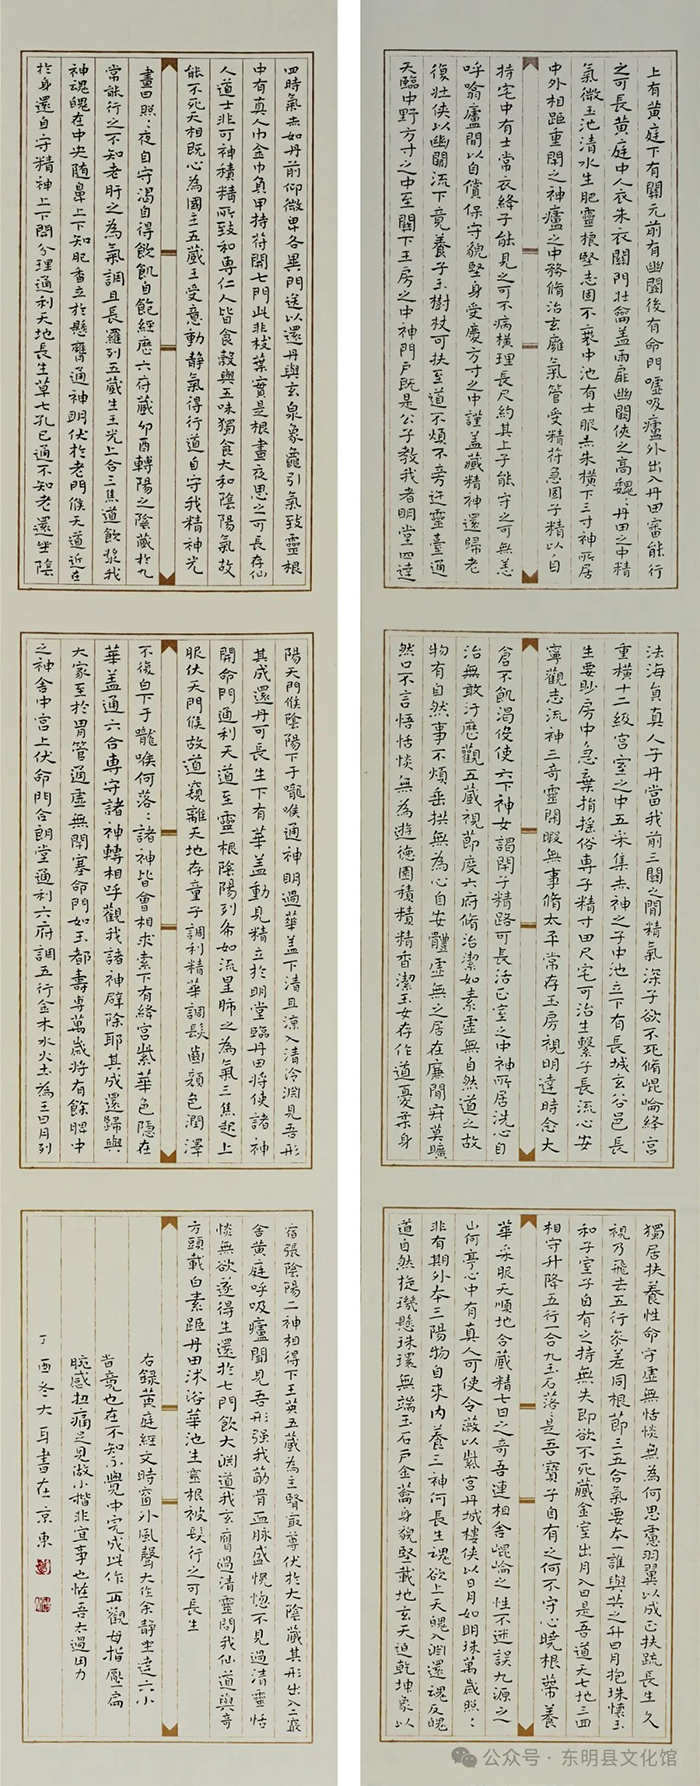 上有黄庭下有關元前有幽闕後有命門噓吸廬外出入丹田審能行
之可長黄庭中人衣朱衣關門壮籥盖兩扉幽闕俠之高魏：丹田之中精
氣微玉池清水生肥靈根堅志固不衰中池有士服赤朱横下三寸神所居
中外相距重閉之神廬之中務脩治玄廱氣管受精符急固子精以自
持宅中有士常衣絳子能見之可不病横理長尺約其上子能守之可無恙
呼噏廬間以自償保守貌堅身受慶方寸之中謹盖藏精神還歸老
復壮俠以幽闕流下竟養子玉樹杖可扶至道不煩不旁迕靈臺通
天臨中野方寸之中至關下王房之中神門户既是公子教我者明堂四達
法海員真人子丹當我前三關之間精氣深子欲不死脩崐崙絳宫
重横十二級宫室之中五采集赤神之子中池立下有長城玄谷邑長
生要眇房中急棄捐摇俗専子精寸田尺宅可治生繫子長流心安
寧觀志流神三奇靈閑暇無事脩太平常存玉房視明達時念大
倉不飢渴役使六丁神女謁閉子精路可長活正室之中神所居洗心自
治無敢汙歷觀五藏視節度六府脩治潔如素虚無自然道之故
物有自然事不煩垂拱無為心自安體虚無之居在廉間寂莫曠
然口不言恬惔無為遊德園積積精香潔玉女存作道憂柔身
獨居扶養性命守虚無恬惔無為何思慮羽翼以成正扶疏長生久
視乃飛去五行參差同根節三五合氣要本一誰與共之升日月抱珠懷玉
和子室子自有之持無失即欲不死藏金室出月入日是吾道天七地三回
相守升降五行一合九玉石落：是吾寳子自有之何不守心曉根蔕養
華采服天順地合藏精七日之奇吾連相舍崐崙之性不迷誤九源之
山何亭：中有真人可使令蔽以紫宫丹城樓俠以日月如明珠萬歲照：
非有期外本三陽物自來内養三神可長生魂欲上天魄入淵還魂反魄
道自然旋璣懸珠環無端玉石戶金籥身貌堅載地玄天迫乾坤象以
四時氣赤如丹前仰後卑各異門送以還丹與玄泉象龜引氣致靈根
中有真人巾金巾負甲持符開七門此非枝葉實是根晝夜思之可長存仙
人道士非可神積精所致和専仁人皆食穀與五味獨食太和陰陽氣故
能不死天相既心為國主五藏王受意動静氣得行道自守我精神光
晝日照：夜自守渴自得飲飢自飽經歷六府藏卯酉轉陽之陰藏於九
常能行之不知老肝之為氣調且長羅列五藏生三光上合三焦道飲漿我
神魂魄在中央隨鼻上下知肥香立於懸膺通神明伏於老門候天道近在
於身還自守精神上下開分理通利天地長生草七孔已通不知老還坐陰
陽天門候陰陽下于嚨喉通神明過華盖下清且涼入清冷淵見吾形
其成還丹可長生下有華盖動見精立於明堂臨丹田将使諸神
開命門通利天道至靈根陰陽列布如流星肺之為氣三焦起上
服伏天門候故道窺離天地存童子調利精華調髮齒顔色潤澤
不復白下于嚨喉何落：諸神皆會相求索下有絳宫紫華色隱在
華盖通六合専守諸神轉相呼觀我諸神辟除耶其成還歸與
大家至於胃管通虚無閉塞命門如玉都壽専萬歲将有餘脾中
之神舍中宫上伏命門合明堂通利六府調五行金木水火土為王日月列
宿張陰陽二神相得下玉英五藏為主腎最尊伏於大陰藏其形出入二竅
舍黄庭呼吸廬間見吾形强我筋骨血脉盛怳惚不見過清靈恬
惔無欲遂得生還於七門飲大淵道我玄膺過清靈問我仙道與奇
方頭載白素距丹田沐浴華池生靈根被髮行之可長生
右録黄庭經文時窗外風聲大作余静坐達六小
皆竟也在不知不覺中完成此作再觀母指壓扁
腕感扭痛之見做小楷非宜事也恠吾太過用力
丁酉冬大耳書在京東
公众号·东明县文化馆